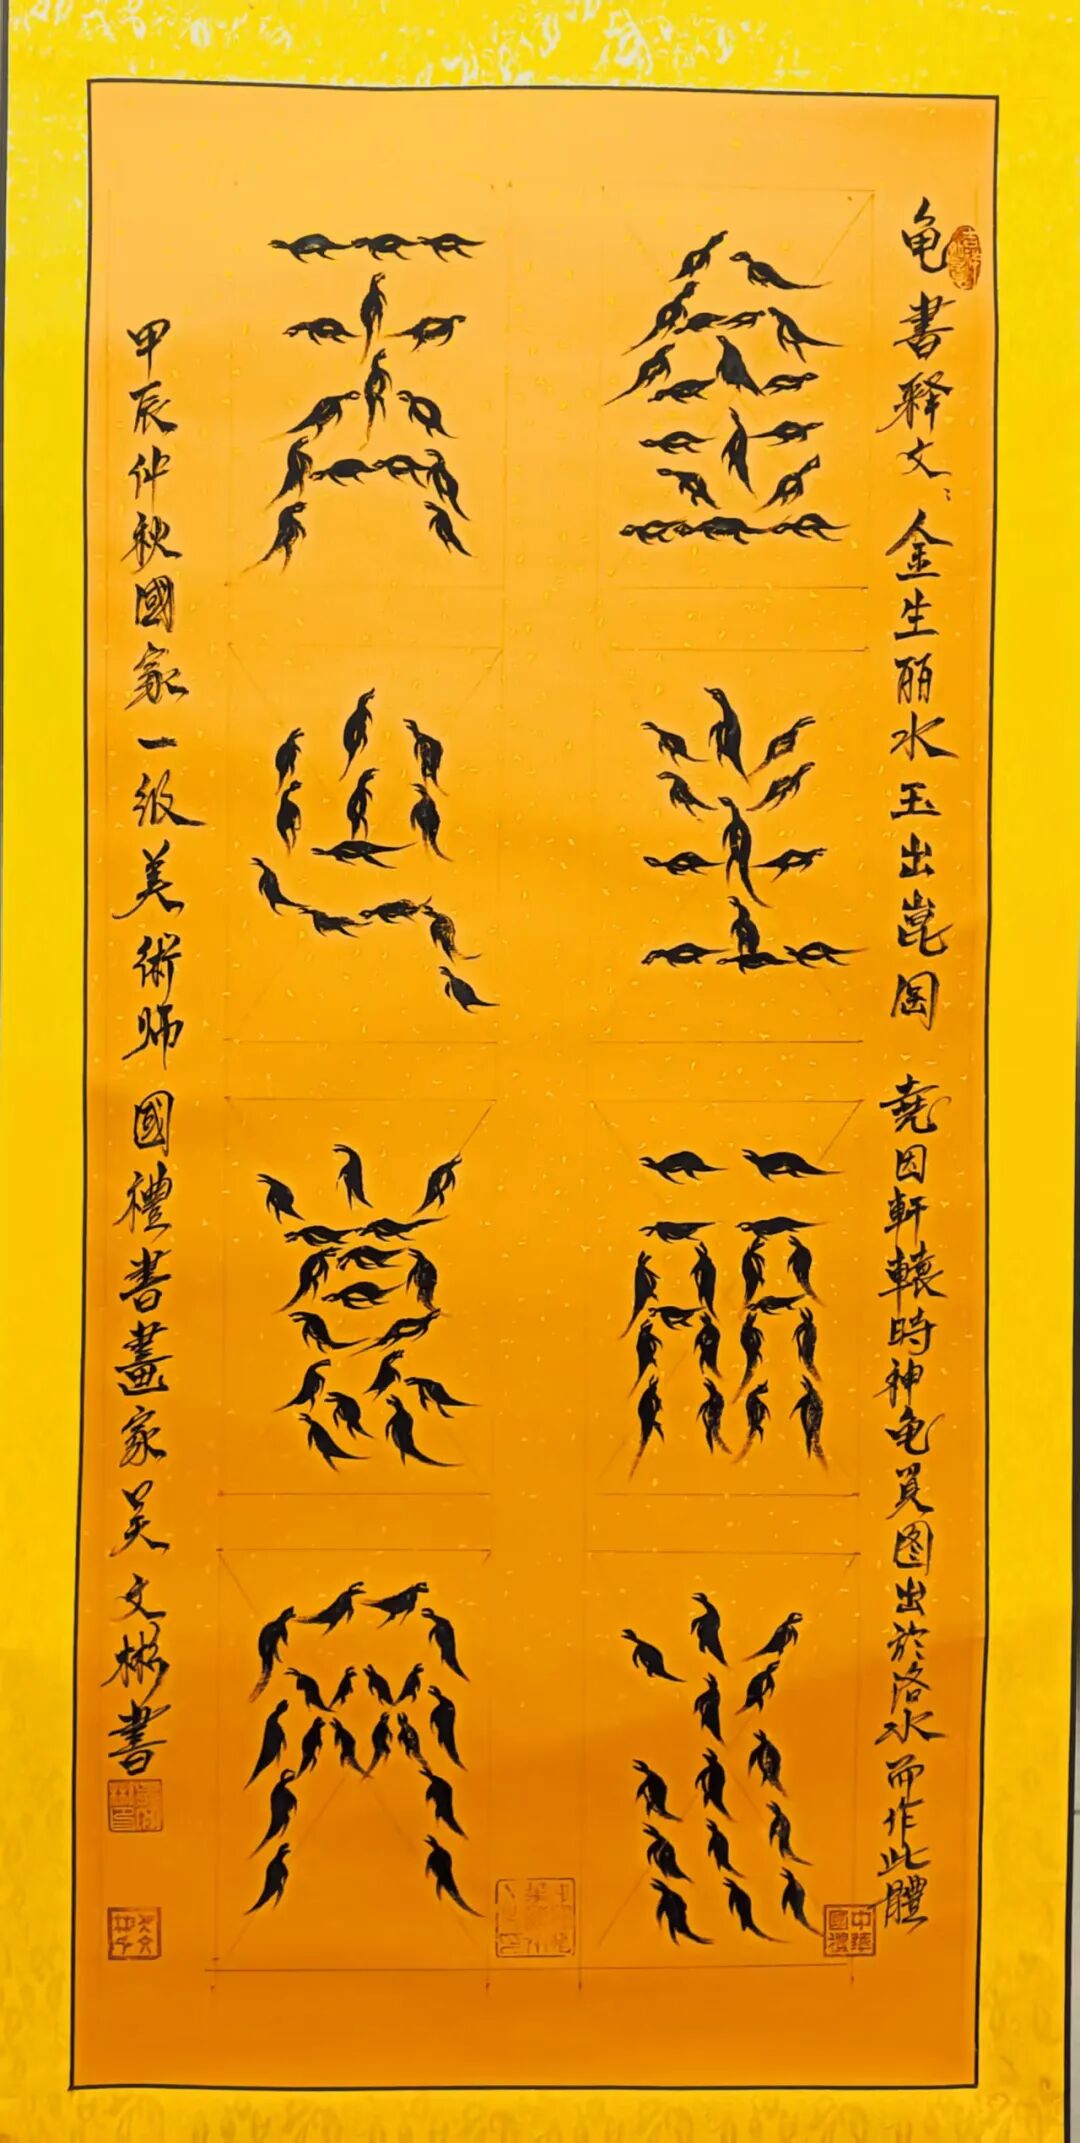 龟書释文：金生丽水玉出崑岡 堯因軒轅時神龟負图出於洛水而作此體
金生丽水
玉出崑岡
甲辰仲秋國家一级美術师國禮書畫家吴文彬書
中華國禮